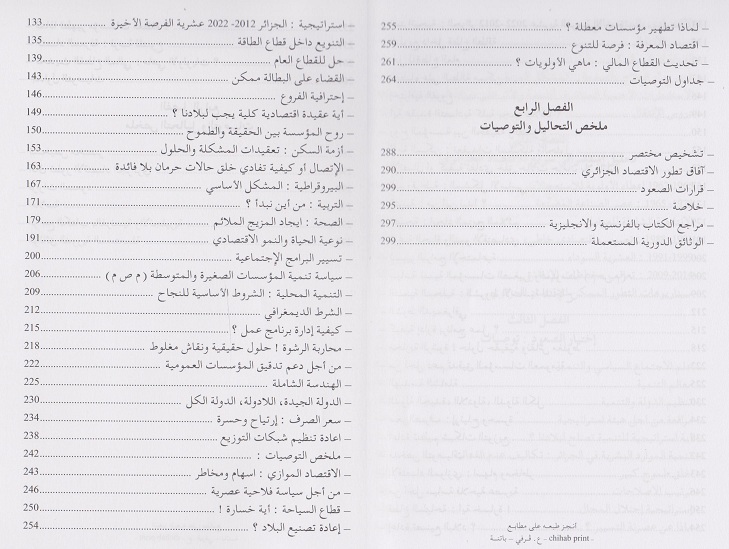 – استراتيجية : الجزائر 2012- 2022 عشرية الفرصة الأخيرة 133
– التنويع داخل قطاع الطاقة 135
– حل للقطاع العام 139
– القضاء على البطالة ممكن 143
– إحترافية الفروع 146
– أية عقيدة اقتصادية كلية يجب لبلادنا ؟ 149
– روح المؤسسة بين الحقيقة والطموح 150
– أزمة السكن : تعقيدات المشكلة والحلول 153
– الإتصال أو كيفية تفادي خلق حالات حرمان بلا فائدة 163
– البيروقراطية : المشكل الأساسي 167
– التربية : من أين نبدأ ؟ 171
– الصحة : ايجاد المزيج الملائم 179
– نوعية الحياة والنمو الاقتصادي 191
– تسيير البرامج الإجتماعية 200
– سياسة تنمية المؤسسات الصغيرة والمتوسطة ( م ص م ) 206
– التنمية المحلية : الشروط الأساسية للنجاح 209
– الشرط الديمغرافي 212
– كيفية إدارة برنامج عمل ؟ 215
– محاربة الرشوة ! حلول حقيقية ونقاش مغلوط 218
– من أجل دعم تدقيق المؤسسات العمومية 222
– الهندسة الشاملة 225
– الدولة الجيدة، اللادولة، الدولة الكل 230
– سعر الصرف : إرتياح وحسرة 234
– اعادة تنظيم شبكات التوزيع 238
– ملخص التوصيات : 242
– الاقتصاد الموازي : اسهام ومخاطر 243
– من أجل سياسة فلاحية عصرية 246
– قطاع السياحة : أية خسارة ! 250
– إعادة تصنيع البلاد ؟ 254
– لماذا تطهير مؤسسات معطلة ؟ 255
– اقتصاد المعرفة : فرصة للتنوع 259
– تحديث القطاع المالي : ماهي الأولويات ؟ 261
– جداول التوصيات 264
الفصل الرابع
ملخص التحاليل والتوصيات
– تشخيص مختصر 288
– آفاق تطور الاقتصاد الجزائري 290
– قرارات الصعود 299
– خلاصة 295
– مراجع الكتاب بالفرنسية والانجليزية 297
– الوثائق الدورية المستعملة 299
أنجز طبعه على مطابع
chihab print - ع . قرفي – باتنة -